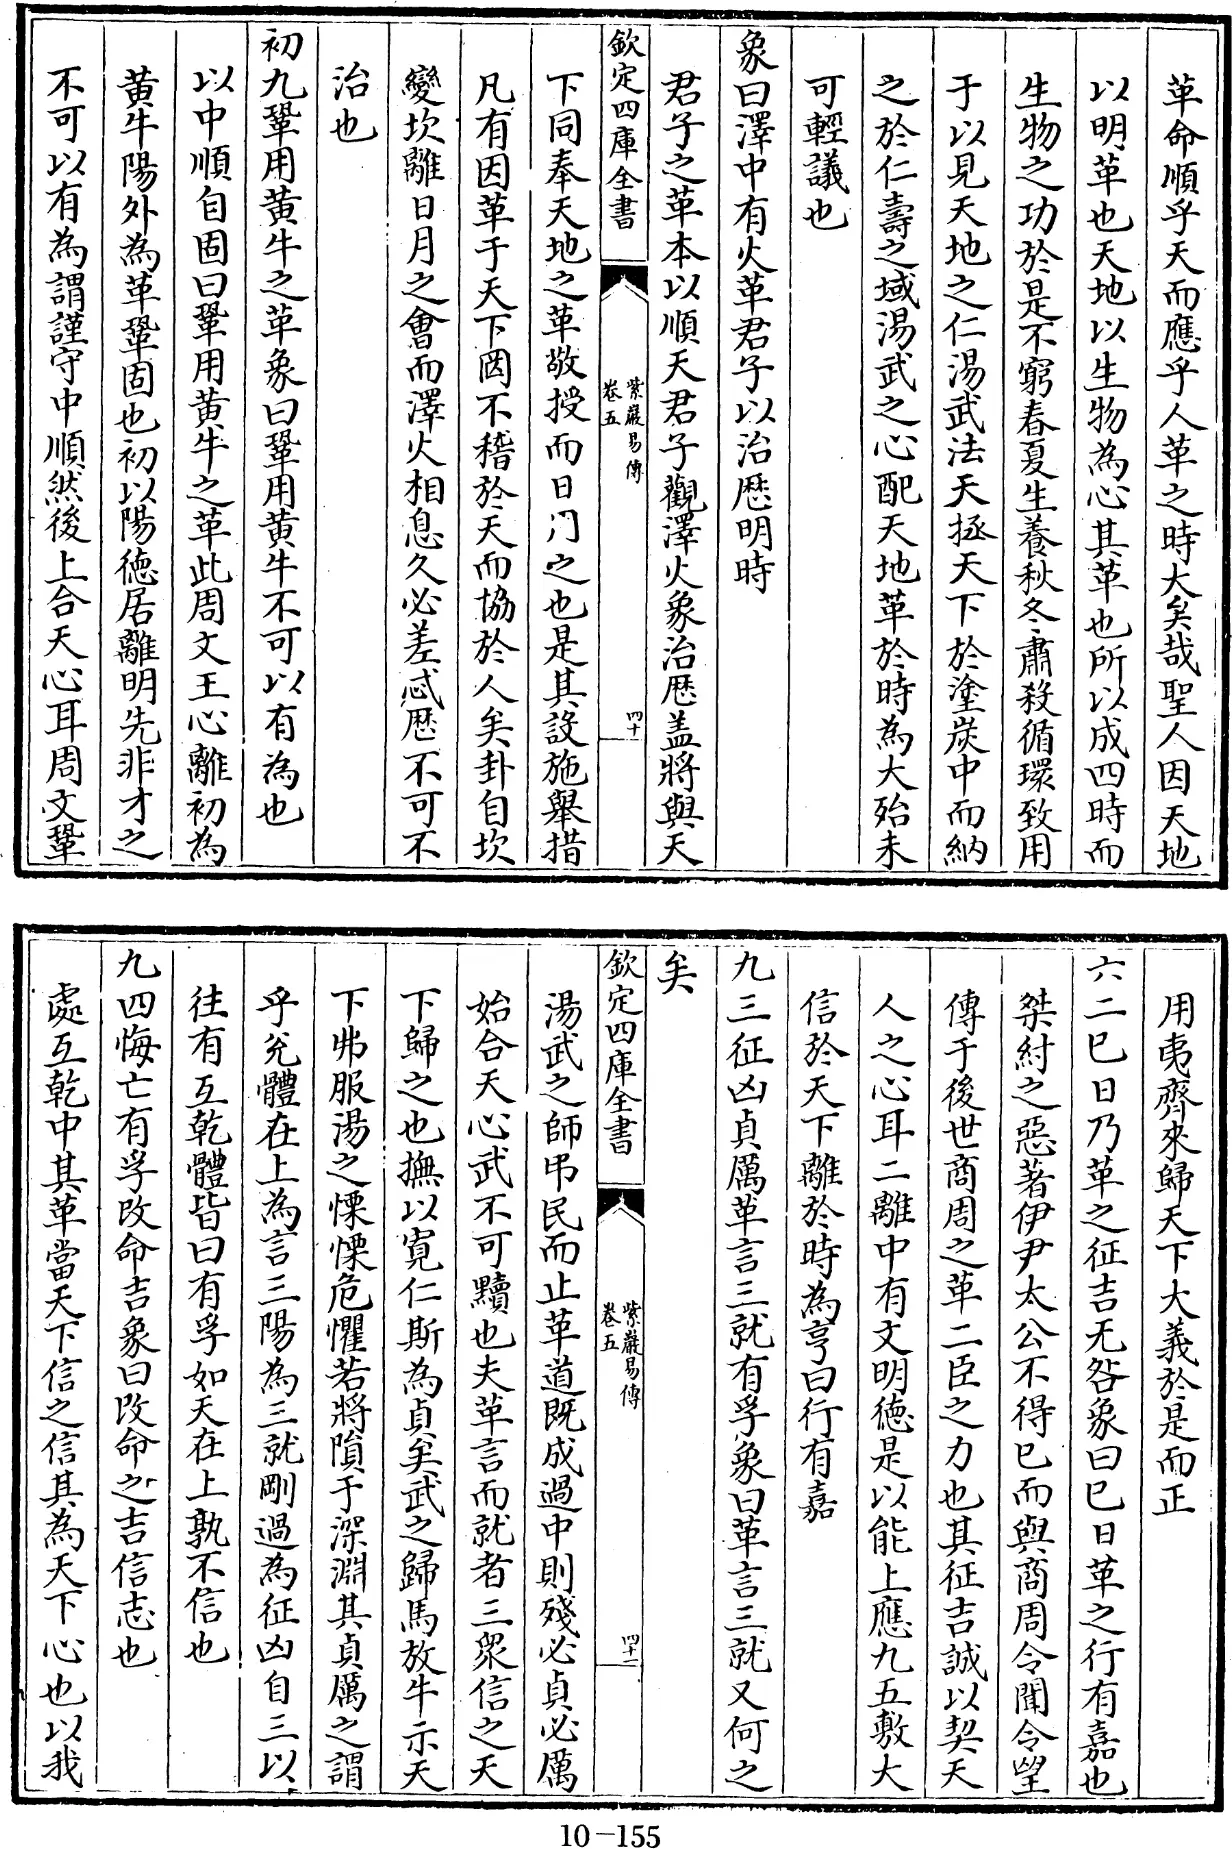 革命順乎天而應乎人革之時大矣哉聖人因天地
以明革也天地以生物為心其革也所以成四時而
生物之功於是不窮春夏生養秋冬肅殺循環致用
于以見天地之仁湯武法天拯天下於塗炭中而納
之於仁壽之域湯武之心配天地革於時為大殆未
可輕議也
象曰澤中有火革君子以治厯明時
君子之革本以順天君子觀澤火象治厯盖將與天
欽定四庫全書
紫巖易傳
卷五
四十
下同奉天地之革敬授而日門之也是其設施舉措
凡有因革于天下罔不稽於天而協於人矣卦自坎
變坎離日月之會而澤火相息久必差忒厯不可不
治也
初九鞏用黃牛之革象曰鞏用黃牛不可以有為也
以中順自固曰鞏用黃牛之革此周文王心離初為
黃牛陽外為革鞏固也初以陽德居離明先非才之
不可以有為謂謹守中順然後上合天心耳周文鞏
用夷齊來歸天下大義於是而正
六二巳日乃革之征吉无咎象曰巳日革之行有嘉也
桀紂之惡著伊尹太公不得已而與商周令聞令望
傳于後世商周之革二臣之力也其征吉誠以契天
人之心耳二離中有文明德是以能上應九五敷大
信於天下離於時為亨曰行有嘉
九三征凶貞厲革言三就有孚象曰革言三就又何之
矣
欽定四庫全書
紫巖易傳
卷五
四十一
湯武之師弔民而止革道既成過中則殘必貞必厲
始合天心武不可黷也夫革言而就者三衆信之天
下歸之也撫以寬仁斯為貞矣武之歸馬放牛示天
下弗服湯之慄慄危懼若將隕于深淵其貞厲之謂
乎兊體在上為言三陽為三就剛過為征凶自三以
往有互乾體皆曰有孚如天在上孰不信也
九四悔亡有孚改命吉象曰改命之吉信志也
處互乾中其革當天下信之信其為天下心也以我
10-155